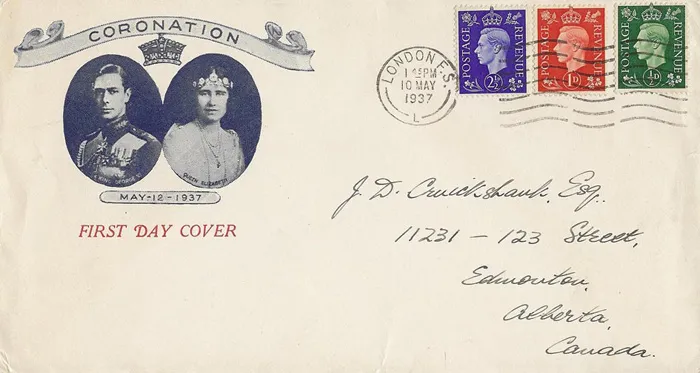 CORONATION
KING GEORGE VI
QUEEN ELIZABETH
MAY-12-1937
FIRST DAY COVER
LONDON F.S.
1 45 PM
10 MAY
1937
L
POSTAGE REVENUE
2½D
POSTAGE REVENUE
1D
POSTAGE REVENUE
½D
J. D. Cruickshank, Esq.
11231 - 123 Street,
Edmonton,
Alberta,
Canada.